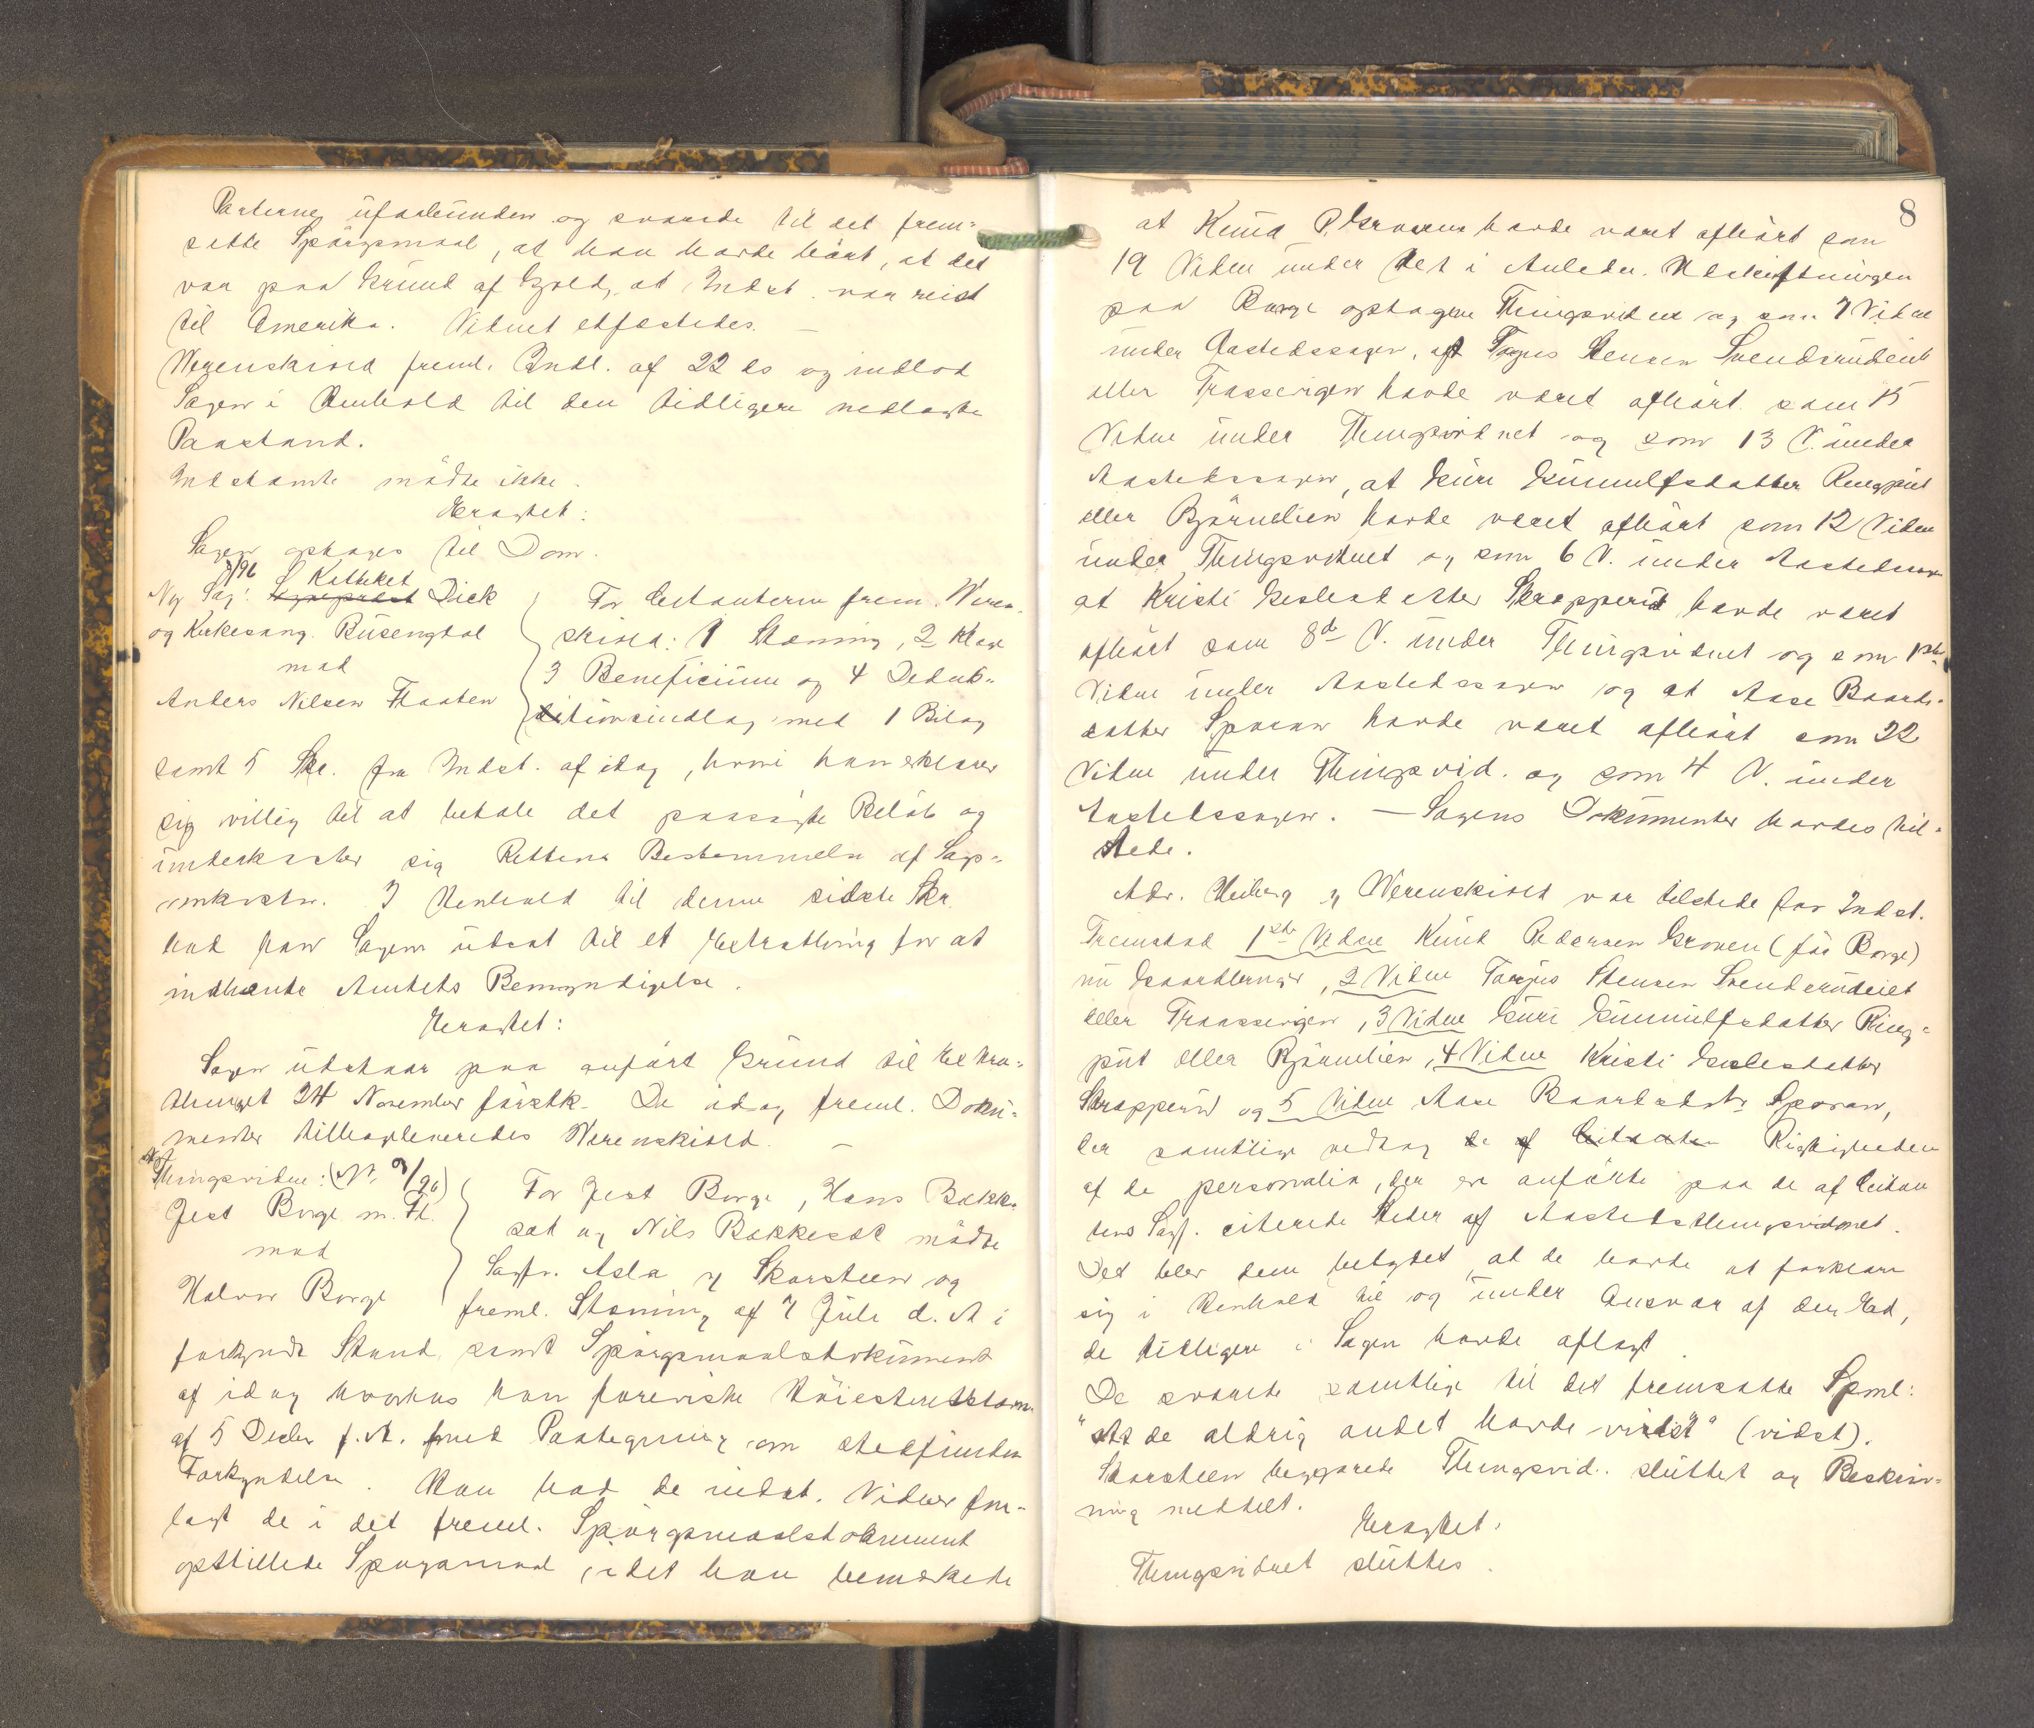 Parterne uforbunden og svarede til det frem-
satte Spörgsmaal, at han havde hört, at det
var paa Grund af Gjeld, at Indst. var reist
til Amerika. Vidnet edfæstedes. —
Werenskiold freml. Indl. af 22 ds og indlod
Sagen i Henhold til den tidligere nedlagte
Paastand.
Indstævnte mödte ikke.
Eragtet:
Sagen optages til Dom.
Ny Sag: 8/96 Sogneprest Katteket Dick
og Kirkesang. Busengdal
mod
Anders Nilsen Flaaten
For Citanterne frem. Weren-
skiold: 1 Stævning, 2 Klage
3 Beneficium og 4 Deduk-
tionsindlag med 1 Bilag
samt 5 Skr. fra Indst. af idag, hvori han erklærer
sig villig til at betale det paasögte Belöb og
underkaster sig Rettens Bestemmelse af Sags-
omkostn. I Henhold til denne sidste Skr.
bad han Sagen udsat til et Extrathing for at
indhente Amtets Bemyndigelse.
Eragtet:
Sagen udstaar paa anfört Grund til Extra-
thinget 24 November förstk. De idag freml. Doku-
menter tilbageleveredes Werenskiold. —
Ny Thingsvidne: (Nr. 9/96)
Jest Borge m. Fl.
mod
Halvor Borge
For Jest Borge, Hans Bakke-
sat og Nils Bakkesat mödte
Sagf. Asla og Skarsteen og
freml. Stævning af 7 Juli d. A i
forkyndt Stand samt Spörgsmaalsdokument
af idag hvorhos han foreviste Höiesteretsstævn.
af 5 Decbr f. A. med Paategning om stedfunden
Forkyndelse. Han bad de indst. Vidner fore-
lagt de i det freml. Spörgsmaalsdokument
opstillede Spögsmaal, idet han bemærkede
8
at Knud P. Groven havde været afhört som
19 Vidne under det i Anledn. Udskiftningen
paa Borge optagne Thingsvidne og som 7 Vidne
under Aastedssagen, at Tarjus Stensen Svendsrudeiet
eller Traasseigen havde været afhört som 15
Vidne under Thingsvidnet og som 13 V. under
Aastedssagen, at Guri Gunnulfsdatter Ringput
eller Björnelien havde været afhört som 12 Vidne
under Thingsvidnet og som 6 V. under Aastedssagen
at Kristi Gislesdatter Skrapperud havde været
afhört som 8de V. under Thingsvidnet og som 1ste
Vidne under Aastedssagen og at Aase Baards-
datter Sporan havde været afhört som 22
Vidne under Thingsvid. og som 4 V. under
Aastedssagen. — Sagens Dokumenter havdes til-
stede.
Adv. Heiberg og Werenskiold var tilstede for Indst.
Fremstod 1ste Vidne Knud Pedersen Groven (för Borge)
nu Gaardbruger, 2 Vidne Tarjus Stensen Svendsrudeiet
eller Traasseigen, 3 Vidne Guri Gunnulfsdatter Ring-
put eller Björnelien, 4 Vidne Kristi Gislesdatter
Skrapperud og 5 Vidne Aase Baardsdatr. Sporan,
der samtlige vedtog de af Citanten Rigtigheden
af de personalia, der er anförte paa de af Citan
tens Sagf. citerede Steder af Aastedsthingsvidnet.
Det blev dem betydet at de havde at forklare
sig i Henhold til og under Ansvar af den Ed,
de tidligere i Sagen havde aflagt.
De svarede samtlige til det fremsatte Spml:
"At de aldrig andet havde vidst" (vidst).
Skarsteen begjærede Thingsvid. sluttet og Beskriv-
ning meddelt.
Eragtet:
Thingsvidnet sluttes.